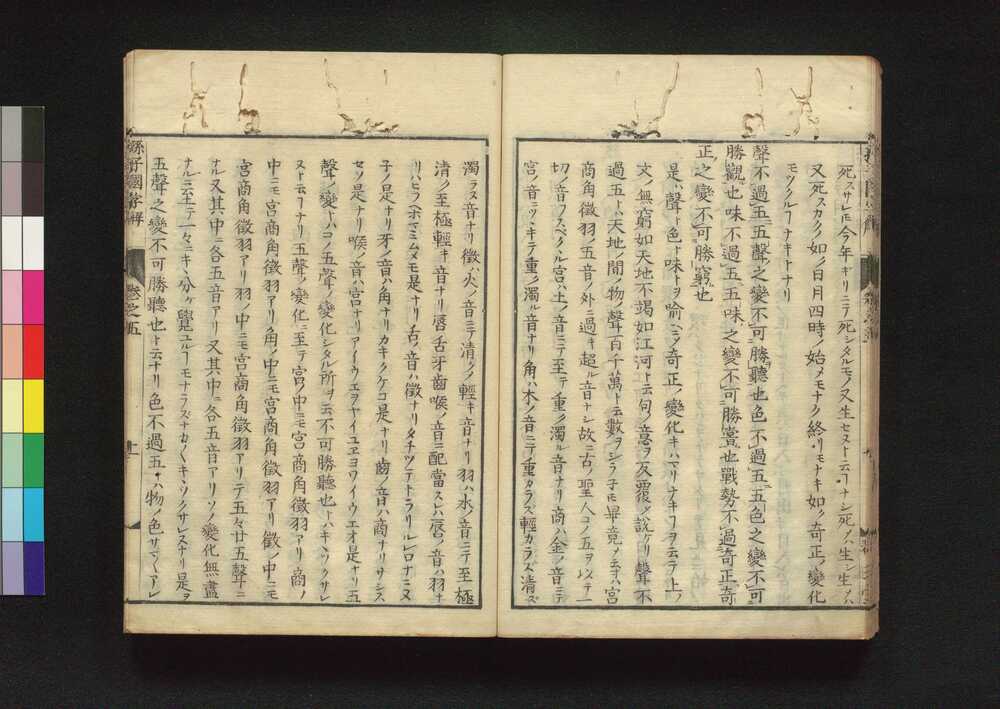 死スサレ𪜈今年ギリニテ死シタルモノ又生セヌト云フナシ死ノハ生シ生ノハ
又死スカクノ如ノ日月四時ノ始メモナク終リモナキ如ク奇正ノ變化
モツクルフナキトナリ
聲不過五五聲之變不可勝聽也色不過五五色之變不可
勝觀也味不過五五味之變不可勝嘗也戰勢不過奇正奇
正之變不可勝窮也
是ハ聲ト色ト味トヲ喩ニシテ奇正ノ變化キハマリナキフヲ云ヘリ上ノ
文ノ無窮如天地不竭如江河ト云句ノ意ヲ反覆シ説ケリ聲不
過五トハ天地ノ間ノ物ノ聲百千萬ト云數ヲシラ子𪜈畢竟メ云寸ハ宮
商角徵羽ノ五音ノ外ニ過キ超ル音ナシ故ニ古ノ聖人コノ五ヲ以テ一
切ノ音ヲスヘタル宮ハ土ノ音ニテ至テ重ク濁ル音ナリ商ハ金ノ音ニテ
宮ノ音ニツヽキテ重ク濁ル音ナリ角ハ木ノ音ニテ重カラズ輕カラズ清ズ
濁ラヌ音ナリ徵ハ火ノ音ニテ清ク輕キ音ナリ羽ハ水ノ音ニテ至極
清ク至極輕キ音ナリ唇舌牙齒喉ノ音ニ配當スレハ唇ノ音ハ羽ナ
リハヒフホマミムメモ是ナリ舌ノ音ハ徵ナリタチツテトラリルレロナニヌ
子ノ是ナリ牙ノ音ハ角ナリカキクケコ是ナリ齒ノ音ハ商ナリサシス
セソ是ナリ喉ノ音ハ宮ナリアイウエヲヤイユエヨワイウエオ是ナリ五
聲ノ變トハコノ五聲ノ變化シタル所ヲ云不可勝聽也トハキヽツクサレ
ヌト云フナリ五聲ノ變化ニ至テ宮ノ中ニモ宮商角徵羽アリ商ノ
中ニモ宮商角徵羽アリ角ノ中ニモ宮商角徵羽アリ徵ノ中ニモ
宮商角徵羽アリ羽ノ中ニモ宮商角徵羽アリテ五々廿五聲ニ
ナル又其中ニ各五音アリ又其中ニ各五音アリソノ變化無盡
ナルニ至テ一々ニキヽ分ケ覺ユルフモナラズナカ〱キヽツクサレスナリ是ヲ
五聲之變不可勝聽也ト云ナリ色不過五トハ物ノ色サマ〲アレ
孫子國字解
卷之五